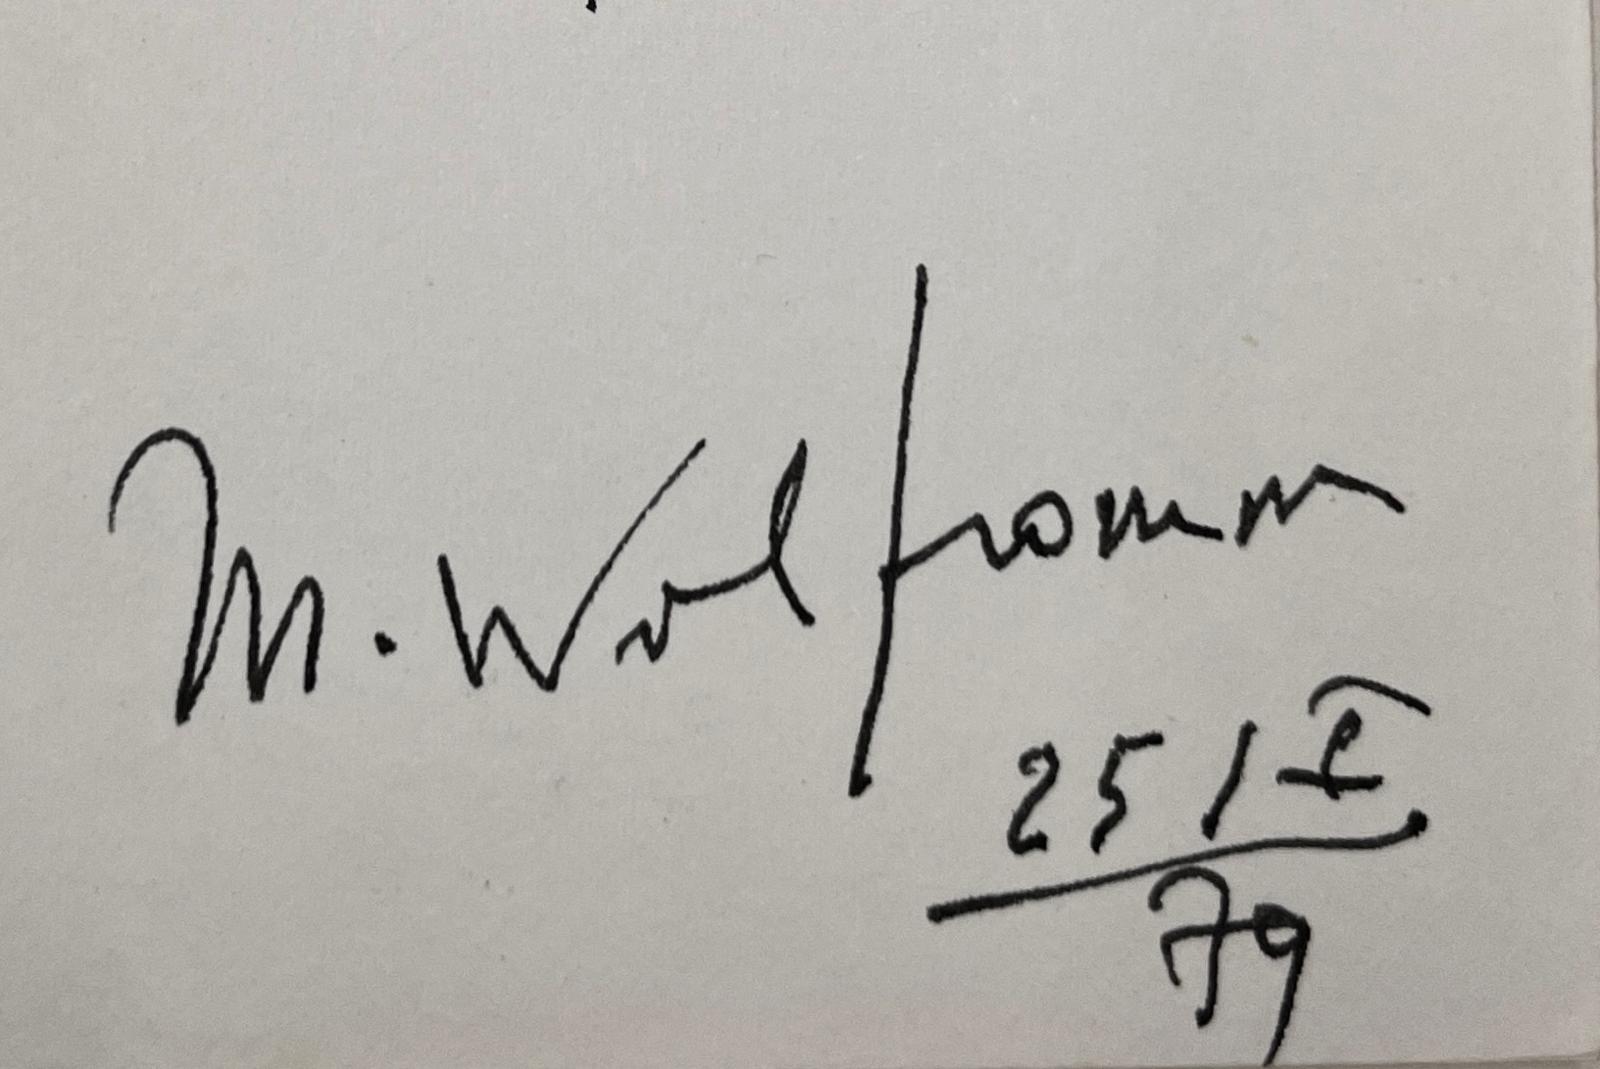 M. Wolfromm
25/I
79